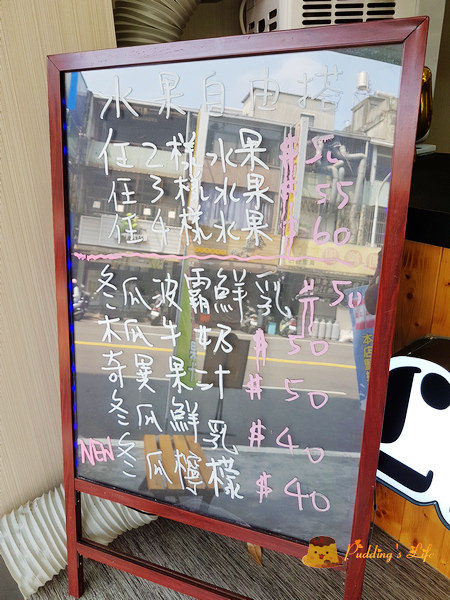 水果自由搭
任2樣水果 $50
任3樣水果 $55
任4樣水果 $60
冬瓜波霸鮮乳 $50
木瓜牛奶 $50
奇異果汁 $50
冬瓜鮮乳 $40
NEW 冬瓜檸檬 $40
Pudding's Life